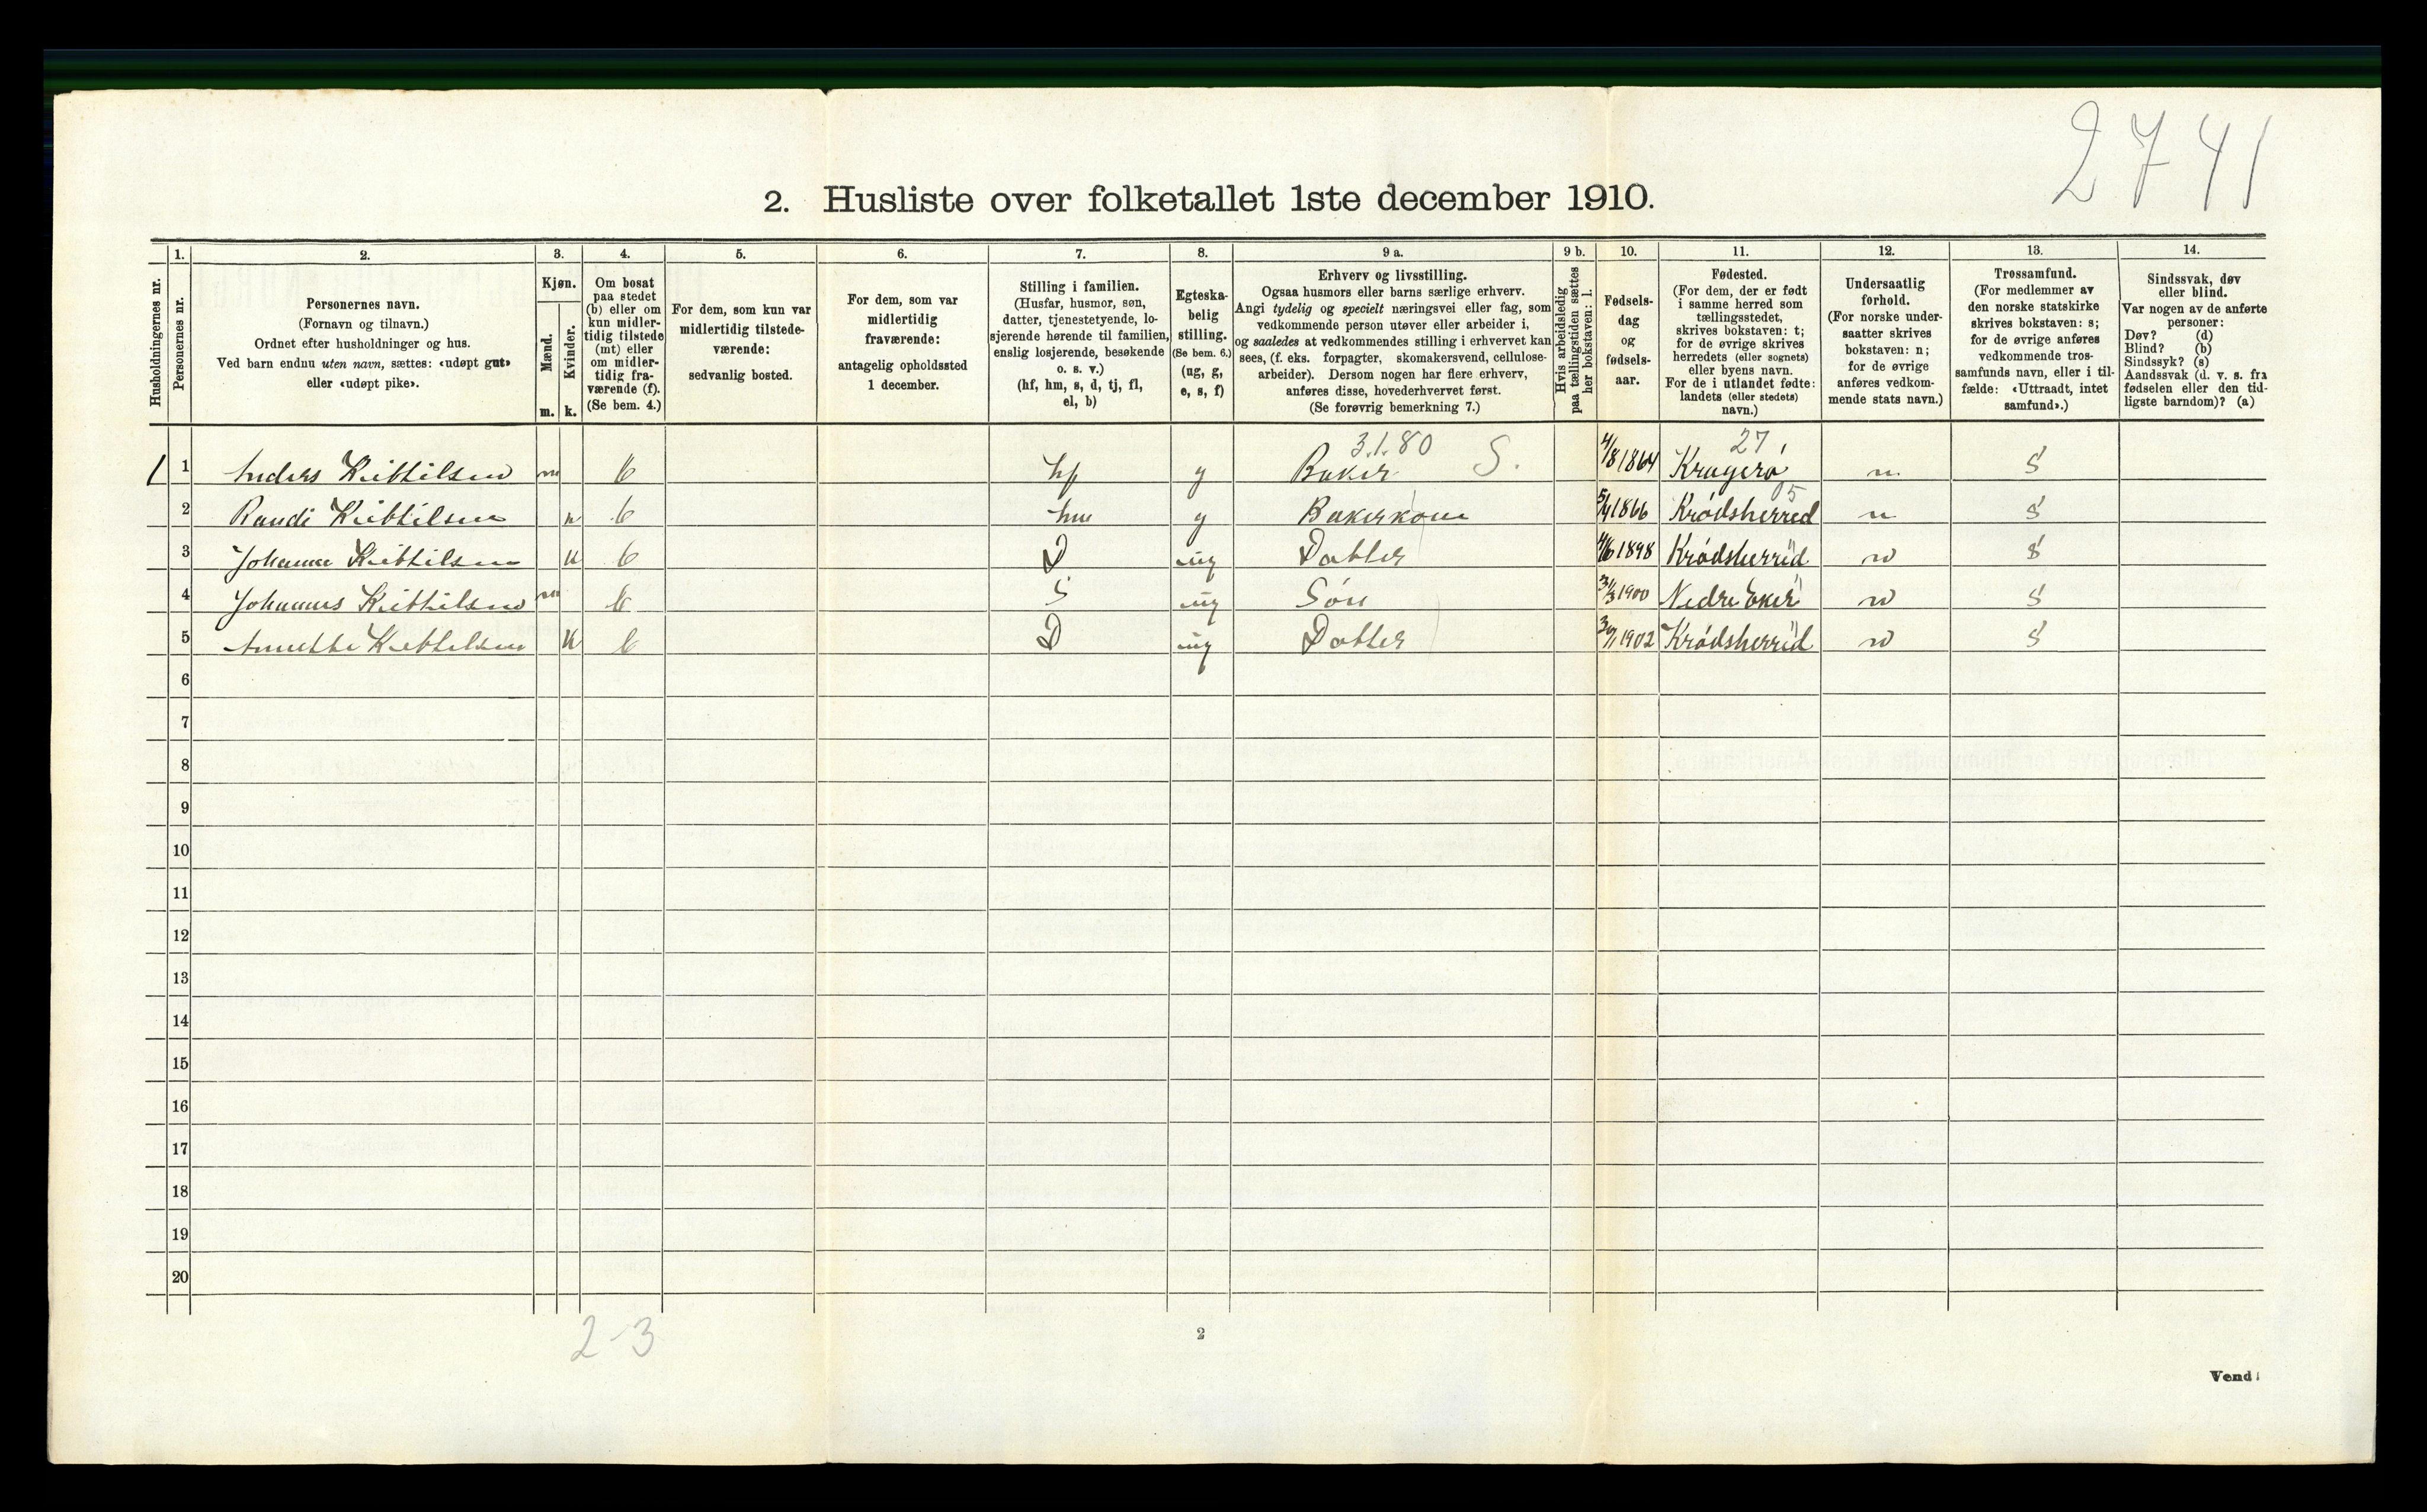 2741
2. Husliste over folketallet 1ste december 1910.
Husholdningernes nr.
1.
Personernes nr.
2.
Personernes navn.
(Fornavn og tilnavn.)
Ordnet efter husholdninger og hus.
Ved barn endnu uten navn, sættes: «udøpt gut»
eller «udøpt pike».
3.
Kjøn.
Mænd.
m.
Kvinder.
k.
4.
Om bosat
paa stedet
(b) eller om
kun midler-
tidig tilstede
(mt) eller
om midler-
tidig fra-
værende (f).
(Se bem. 4.)
5.
For dem, som kun var
midlertidig tilstede-
værende:
sedvanlig bosted.
6.
For dem, som var
midlertidig
fraværende:
antagelig opholdssted
1 december.
7.
Stilling i familien.
(Husfar, husmor, søn,
datter, tjenestetyende, lo-
sjerende hørende til familien,
enslig losjerende, besøkende
o. s. v.)
(hf, hm, s, d, tj, fl,
el, b)
8.
Egteska-
belig
stilling.
(Se bem. 6.)
(ug, g,
e, s, f)
9 a.
Erhverv og livsstilling.
Ogsaa husmors eller barns særlige erhverv.
Angi tydelig og specielt næringsvei eller fag, som
vedkommende person utøver eller arbeider i,
og saaledes at vedkommendes stilling i erhvervet kan
sees, (f. eks. forpagter, skomakersvend, cellulose-
arbeider). Dersom nogen har flere erhverv,
anføres disse, hovederhvervet først.
(Se forøvrig bemerkning 7.)
9 b.
Hvis arbeidsledig
paa tællingstiden sættes
her bokstaven: l.
10.
Fødsels-
dag
og
fødsels-
aar.
11.
Fødested.
(For dem, der er født
i samme herred som
tællingsstedet,
skrives bokstaven: t;
for de øvrige skrives
herredets (eller sognets)
eller byens navn.
For de i utlandet fødte:
landets (eller stedets)
navn.)
12.
Undersaatlig
forhold.
(For norske under-
saatter skrives
bokstaven: n;
for de øvrige
anføres vedkom-
mende stats navn.)
13.
Trossamfund.
(For medlemmer av
den norske statskirke
skrives bokstaven: s;
for de øvrige anføres
vedkommende tros-
samfunds navn, eller i til-
fælde: «Uttraadt, intet
samfund».)
14.
Sindssvak, døv
eller blind.
Var nogen av de anførte
personer:
Døv? (d)
Blind? (b)
Sindssyk? (s)
Aandssvak (d. v. s. fra
fødselen eller den tid-
ligste barndom)? (a)
3.1.80 S. 27
1 1 Anders Kittilsen m b hf g Baker 4/8 1864 Kragerø n s
05
2 Randi Kittilsen k b hm g Bakerkone 1866 Krødsherred n s
3 Johanne Kittilsen k b D ug Datter 1898 Krødsherred n s
4 Johannes Kittilsen m b S ug Søn 1900 Nedre Eker n s
5 Annette Kittilsen k b D ug Datter 1902 Krødsherred n s
6
7
8
9
10
11
12
13
14
15
16
17
18
19
20
2-3
2
Vend!